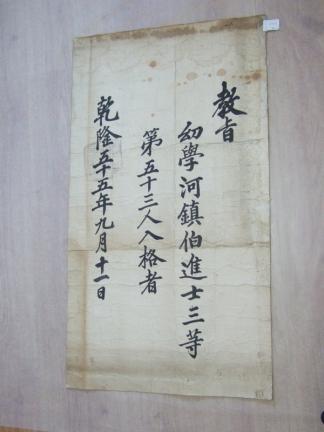 敎旨
幼學河鎭伯進士三等
第五十三人入格者
乾隆五十五年九月十一日